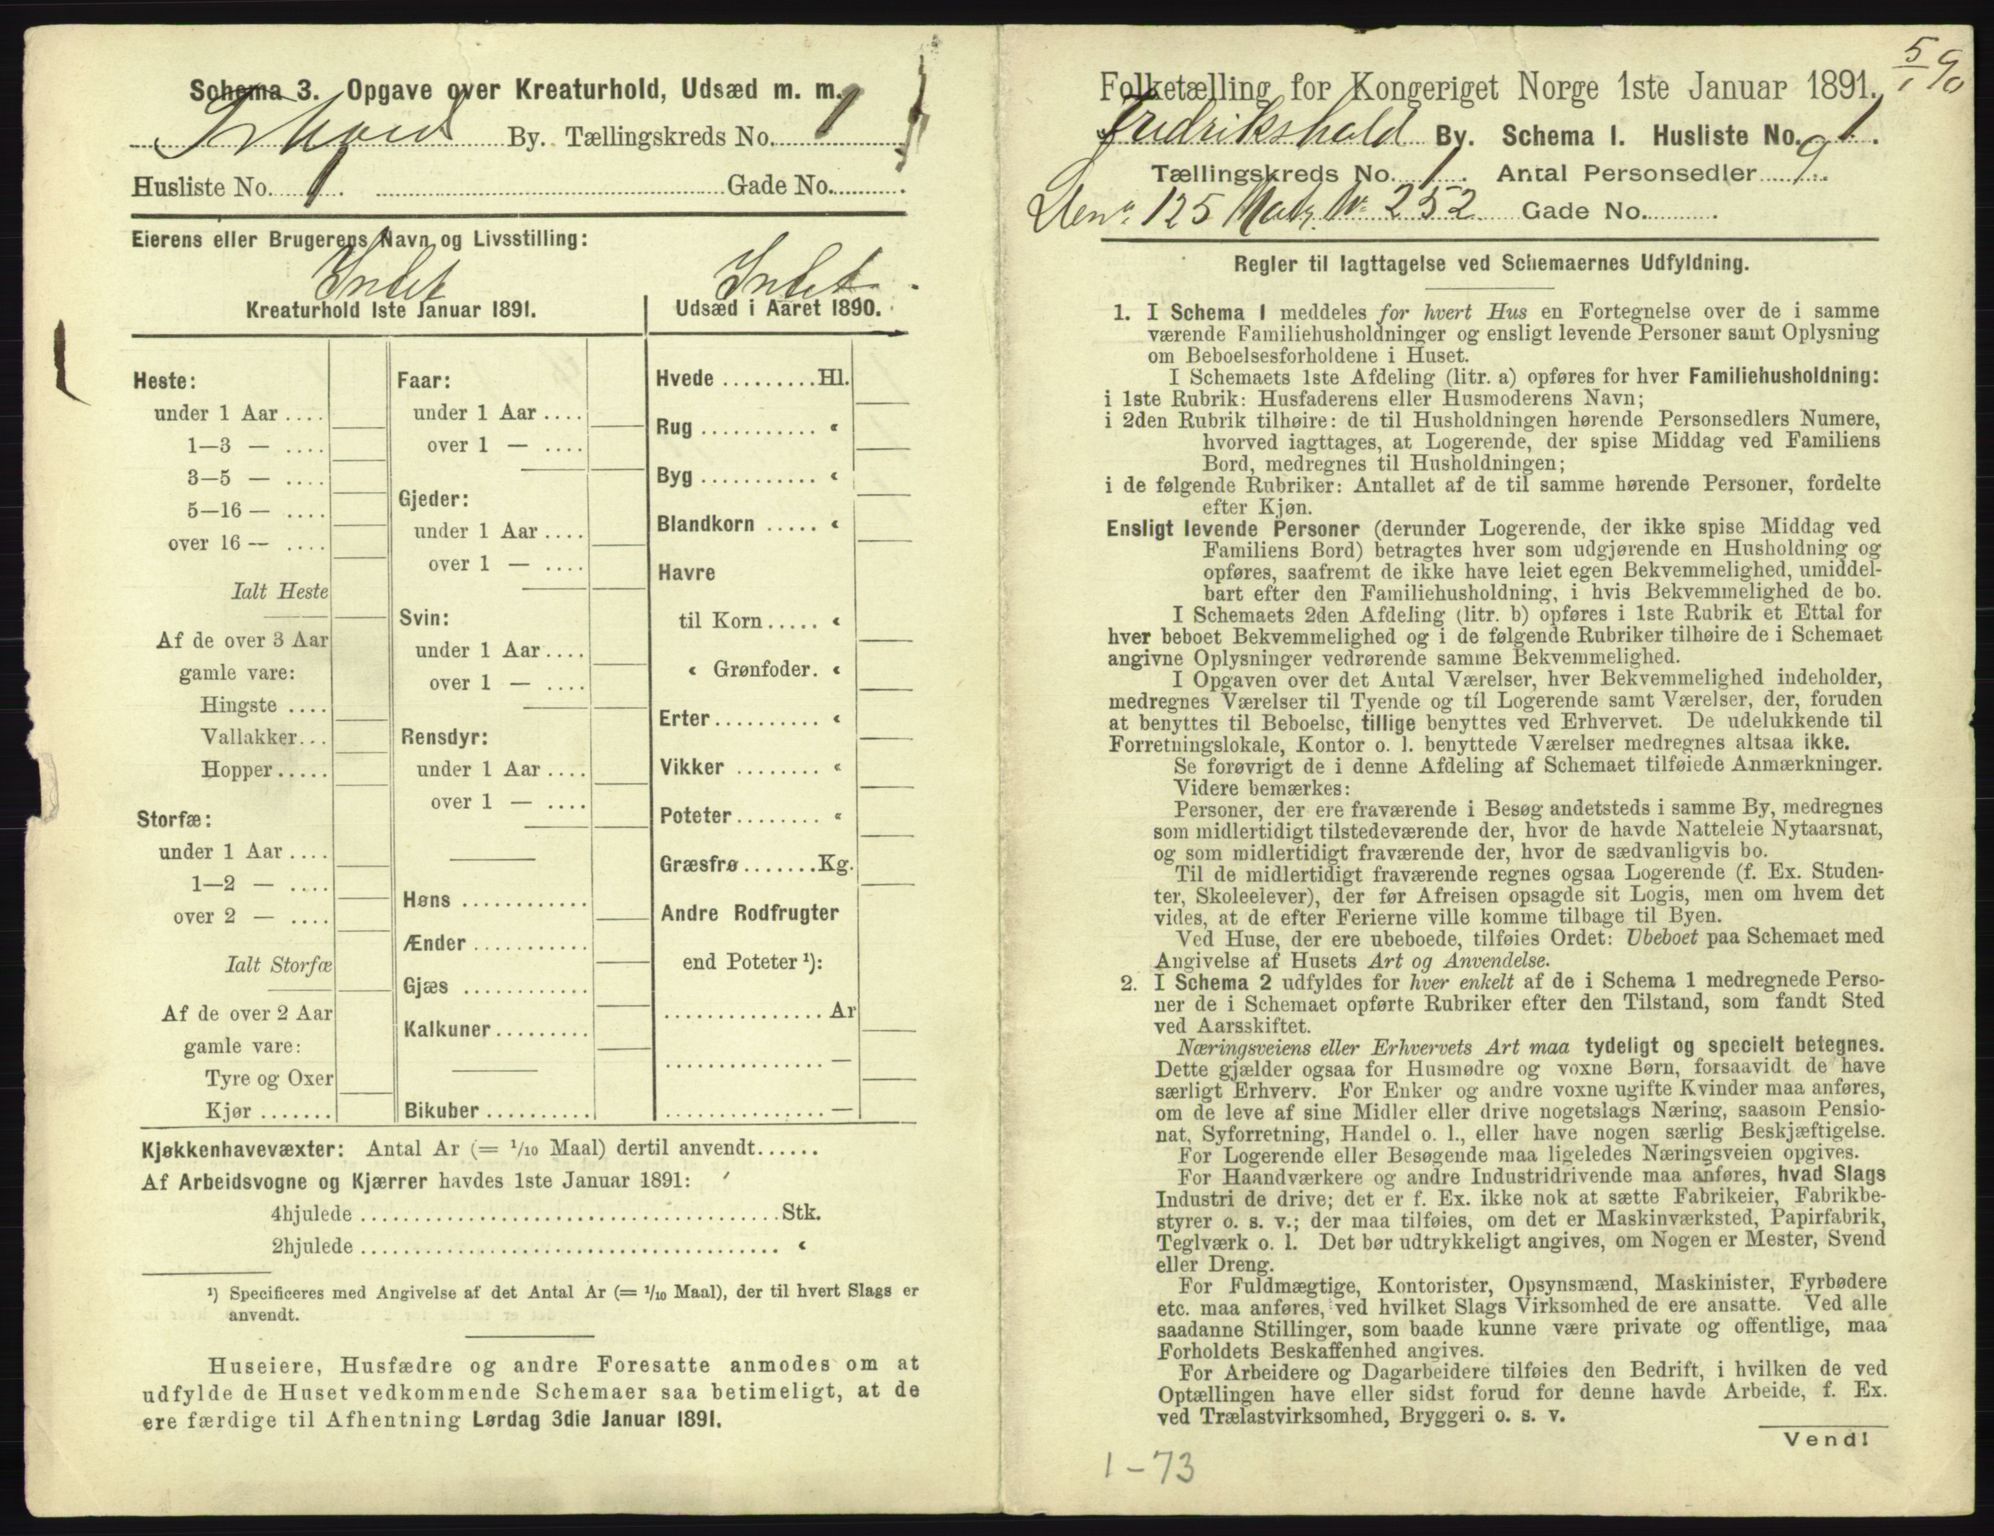 Schema 3. Opgave over Kreaturhold, Udsæd m. m.
Frhald By. Tællingskreds No. 1
Husliste No. 1. Gade No.
Eierens eller Brugerens Navn og Livsstilling:
Intet Intet
Kreaturhold 1ste Januar 1891.
Udsæd i Aaret 1890.
Heste:
under 1 Aar ....
1—3 — ....
3—5 — ....
5—16 — ....
over 16 — ....
Ialt Heste
Af de over 3 Aar
gamle vare:
Hingste ....
Vallakker...
Hopper.....
Storfæ:
under 1 Aar....
1—2 — ....
over 2 — ....
Ialt Storfæ
Af de over 2 Aar
gamle vare:
Tyre og Oxer
Kjør .......
Faar:
under 1 Aar....
over 1 — ....
Gjeder:
under 1 Aar....
over 1 — ....
Svin:
under 1 Aar....
over 1 — ....
Rensdyr:
under 1 Aar....
over 1 — ....
Høns ............
Ænder ...........
Gjæs ............
Kalkuner.........
Bikuber..........
Hvede .........Hl.
Rug ........... «
Byg ........... «
Blandkorn ..... «
Havre
til Korn..... «
« Grønfoder. «
Erter.......... «
Vikker ........ «
Poteter........ «
Græsfrø .......Kg.
Andre Rodfrugter
end Poteter ¹):
................ Ar
................ —
................ —
Kjøkkenhavevæxter: Antal Ar (= 1/10 Maal) dertil anvendt......
Af Arbeidsvogne og Kjærrer havdes 1ste Januar 1891:
4hjulede ........................................Stk.
2hjulede ........................................ «
¹) Specificeres med Angivelse af det Antal Ar (= 1/10 Maal), der til hvert Slags er
anvendt.
Huseiere, Husfædre og andre Foresatte anmodes om at
udfylde de Huset vedkommende Schemaer saa betimeligt, at de
ere færdige til Afhentning Lørdag 3die Januar 1891.
5/1 90
Folketælling for Kongeriget Norge 1ste Januar 1891.
Fredrikshald By. Schema I. Husliste No. 1.
Tællingskreds No. 1. Antal Personsedler 9.
125 Matr. No 252 Gade No.
Regler til Iagttagelse ved Schemaernes Udfyldning.
1. I Schema 1 meddeles for hvert Hus en Fortegnelse over de i samme
værende Familiehusholdninger og ensligt levende Personer samt Oplysning
om Beboelsesforholdene i Huset.
I Schemaets 1ste Afdeling (litr. a) opføres for hver Familiehusholdning:
i 1ste Rubrik: Husfaderens eller Husmoderens Navn;
i 2den Rubrik tilhøire: de til Husholdningen hørende Personsedlers Numere,
hvorved iagttages, at Logerende, der spise Middag ved Familiens
Bord, medregnes til Husholdningen;
i de følgende Rubriker: Antallet af de til samme hørende Personer, fordelte
efter Kjøn.
Ensligt levende Personer (derunder Logerende, der ikke spise Middag ved
Familiens Bord) betragtes hver som udgjørende en Husholdning og
opføres, saafremt de ikke have leiet egen Bekvemmelighed, umiddel-
bart efter den Familiehusholdning, i hvis Bekvemmelighed de bo.
I Schemaets 2den Afdeling (litr. b) opføres i 1ste Rubrik et Ettal for
hver beboet Bekvemmelighed og i de følgende Rubriker tilhøire de i Schemaet
angivne Oplysninger vedrørende samme Bekvemmelighed.
I Opgaven over det Antal Værelser, hver Bekvemmelighed indeholder,
medregnes Værelser til Tyende og til Logerende samt Værelser, der, foruden
at benyttes til Beboelse, tillige benyttes ved Erhvervet. De udelukkende til
Forretningslokale, Kontor o. l. benyttede Værelser medregnes altsaa ikke.
Se forøvrigt de i denne Afdeling af Schemaet tilføiede Anmærkninger.
Videre bemærkes:
Personer, der ere fraværende i Besøg andetsteds i samme By, medregnes
som midlertidigt tilstedeværende der, hvor de havde Natteleie Nytaarsnat,
og som midlertidigt fraværende der, hvor de sædvanligvis bo.
Til de midlertidigt fraværende regnes ogsaa Logerende (f. Ex. Studen-
ter, Skoleelever), der før Afreisen opsagde sit Logis, men om hvem det
vides, at de efter Ferierne ville komme tilbage til Byen.
Ved Huse, der ere ubeboede, tilføies Ordet: Ubeboet paa Schemaet med
Angivelse af Husets Art og Anvendelse.
2. I Schema 2 udfyldes for hver enkelt af de i Schema 1 medregnede Perso-
ner de i Schemaet opførte Rubriker efter den Tilstand, som fandt Sted
ved Aarsskiftet.
Næringsveiens eller Erhvervets Art maa tydeligt og specielt betegnes.
Dette gjælder ogsaa for Husmødre og voxne Børn, forsaavidt de have
særligt Erhverv. For Enker og andre voxne ugifte Kvinder maa anføres,
om de leve af sine Midler eller drive nogetslags Næring, saasom Pensio-
nat, Syforretning, Handel o. l., eller have nogen særlig Beskjæftigelse.
For Logerende eller Besøgende maa ligeledes Næringsveien opgives.
For Haandværkere og andre Industridrivende maa anføres, hvad Slags
Industri de drive; det er f. Ex. ikke nok at sætte Fabrikeier, Fabrikbe-
styrer o. s. v.; der maa tilføies, om det er Maskinværksted, Papirfabrik,
Teglværk o. l. Det bør udtrykkeligt angives, om Nogen er Mester, Svend
eller Dreng.
For Fuldmægtige, Kontorister, Opsynsmænd, Maskinister, Fyrbødere
etc. maa anføres, ved hvilket Slags Virksomhed de ere ansatte. Ved alle
saadanne Stillinger, som baade kunne være private og offentlige, maa
Forholdets Beskaffenhed angives.
For Arbeidere og Dagarbeidere tilføies den Bedrift, i hvilken de ved
Optællingen have eller sidst forud for denne havde Arbeide, f. Ex.
ved Trælastvirksomhed, Bryggeri o. s. v.
Vend!
1-73